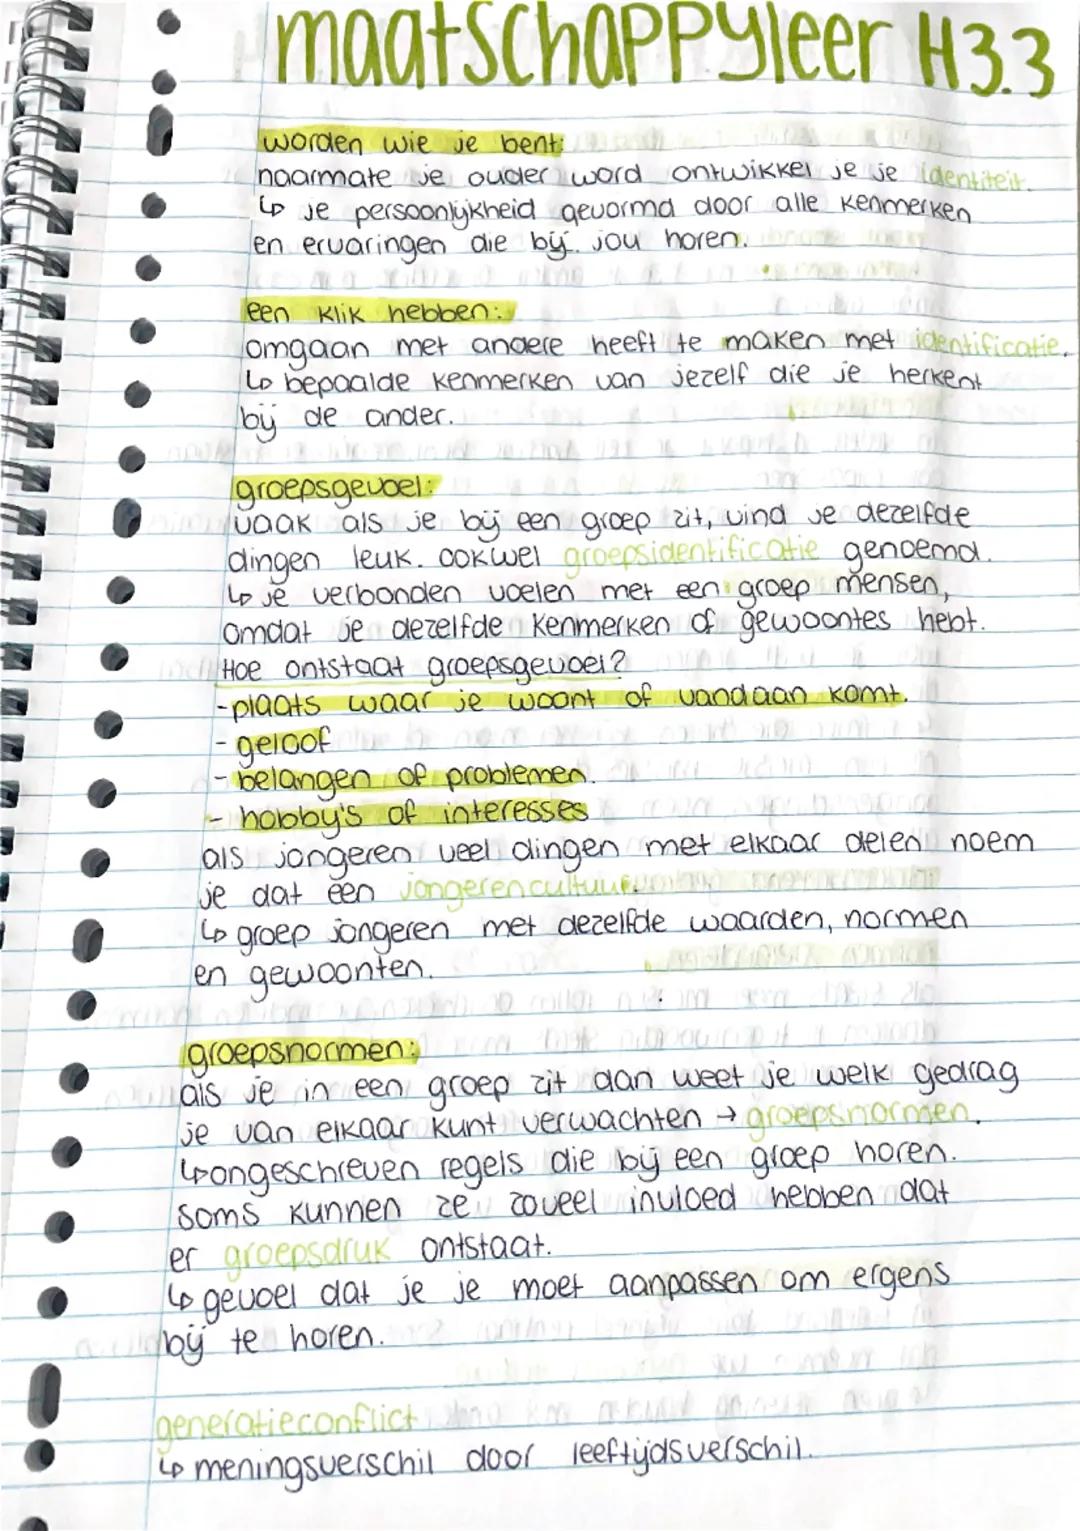 maatschappyleer H3.3
worden wie je bent:
naarmate je ouder word ontwikkel je je identiteit.
↳ je persoonlijkheid gevormd door alle kenmerken
en ervaringen die bij jou horen.
een klik hebben:
omgaan met andere heeft te maken met identificatie.
↳ bepaalde kenmerken van jezelf die je herkent
bij de ander.
groepsgevoel:
vaak als je bij een groep zit, vind je dezelfde
dingen leuk. ookwel groepsidentificatie genoemd.
↳ je verbonden voelen met een groep mensen,
omdat je dezelfde kenmerken of gewoontes hebt.
Hoe ontstaat groepsgevoel?
- plaats waar je woont of vandaan komt.
- geloof
- belangen of problemen.
- hobby's of interesses
als jongeren veel dingen met elkaar delen noem
je dat een jongerencultuur.
↳ groep jongeren met dezelfde waarden, normen
en gewoonten.
groepsnormen:
als je in een groep zit dan weet je welk gedrag
je van elkaar kunt verwachten → groepsnormen.
↳ ongeschreven regels die bij een groep horen.
soms kunnen ze zoveel invloed hebben dat
er groepsdruk ontstaat.
↳ gevoel dat je je moet aanpassen om ergens
bij te horen.
generatieconflict
↳ meningsverschil door leeftijdsverschil.